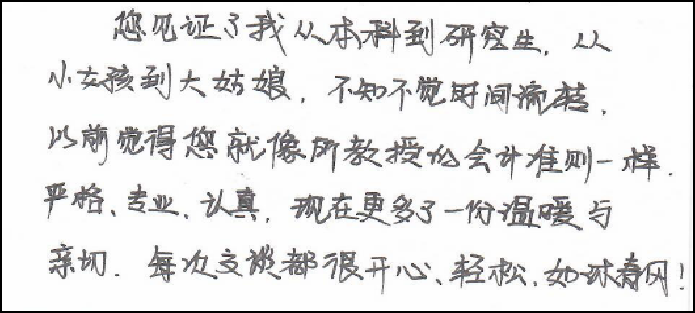 您见证了我从本科到研究生，从
小女孩到大姑娘，不知不觉时间流转，
以前觉得您就像所教授的会计准则一样，
严格、专业、认真，现在更多了一份温暖与
亲切．每次交谈都很开心、轻松、如沐春风！